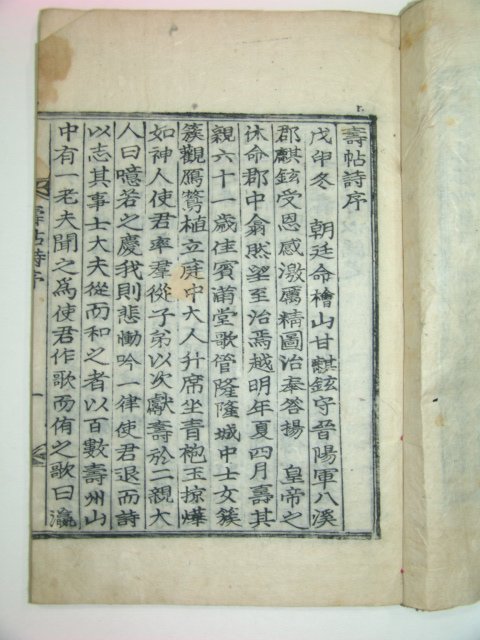 壽帖詩序
戊申冬 朝廷命檜山甘麒鉉守晉陽軍八溪
郡麒鉉受恩感激厲精圖治奉答揚 皇帝之
休命郡中翕然望至治焉越明年夏四月壽其
親六十一歲佳賓滿堂歌管隆隆城中士女簇
簇觀鴈鶩植立庭中大人升席坐青袍玉掠燁
如神人使君率羣從子弟以次獻壽於二親大
人曰噫若之慶我則悲慟吟一律使君退而詩
以志其事士大夫從而和之者以百數壽州山
中有一老夫聞之爲使君作歌而侑之歌曰瀛
壽帖詩序
一